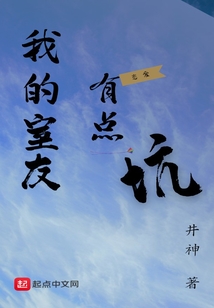 我的室友
有点
坑
井神 著
起点中文网